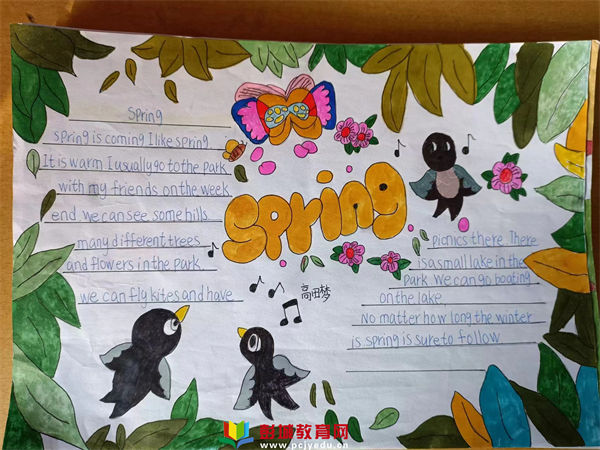 Spring
spring is coming I like spring.
It is warm I usually go to the park
with my friends on the week
end. we can see some hills
many different trees
and flowers in the park.
we can fly kites and have
spring
高田梦
picnics there. There
is a small lake in the
park. We can go boating
on the lake
No matter how long the winter
is. spring is sure to follow
彭城教育网
www.pcjyedu.cn